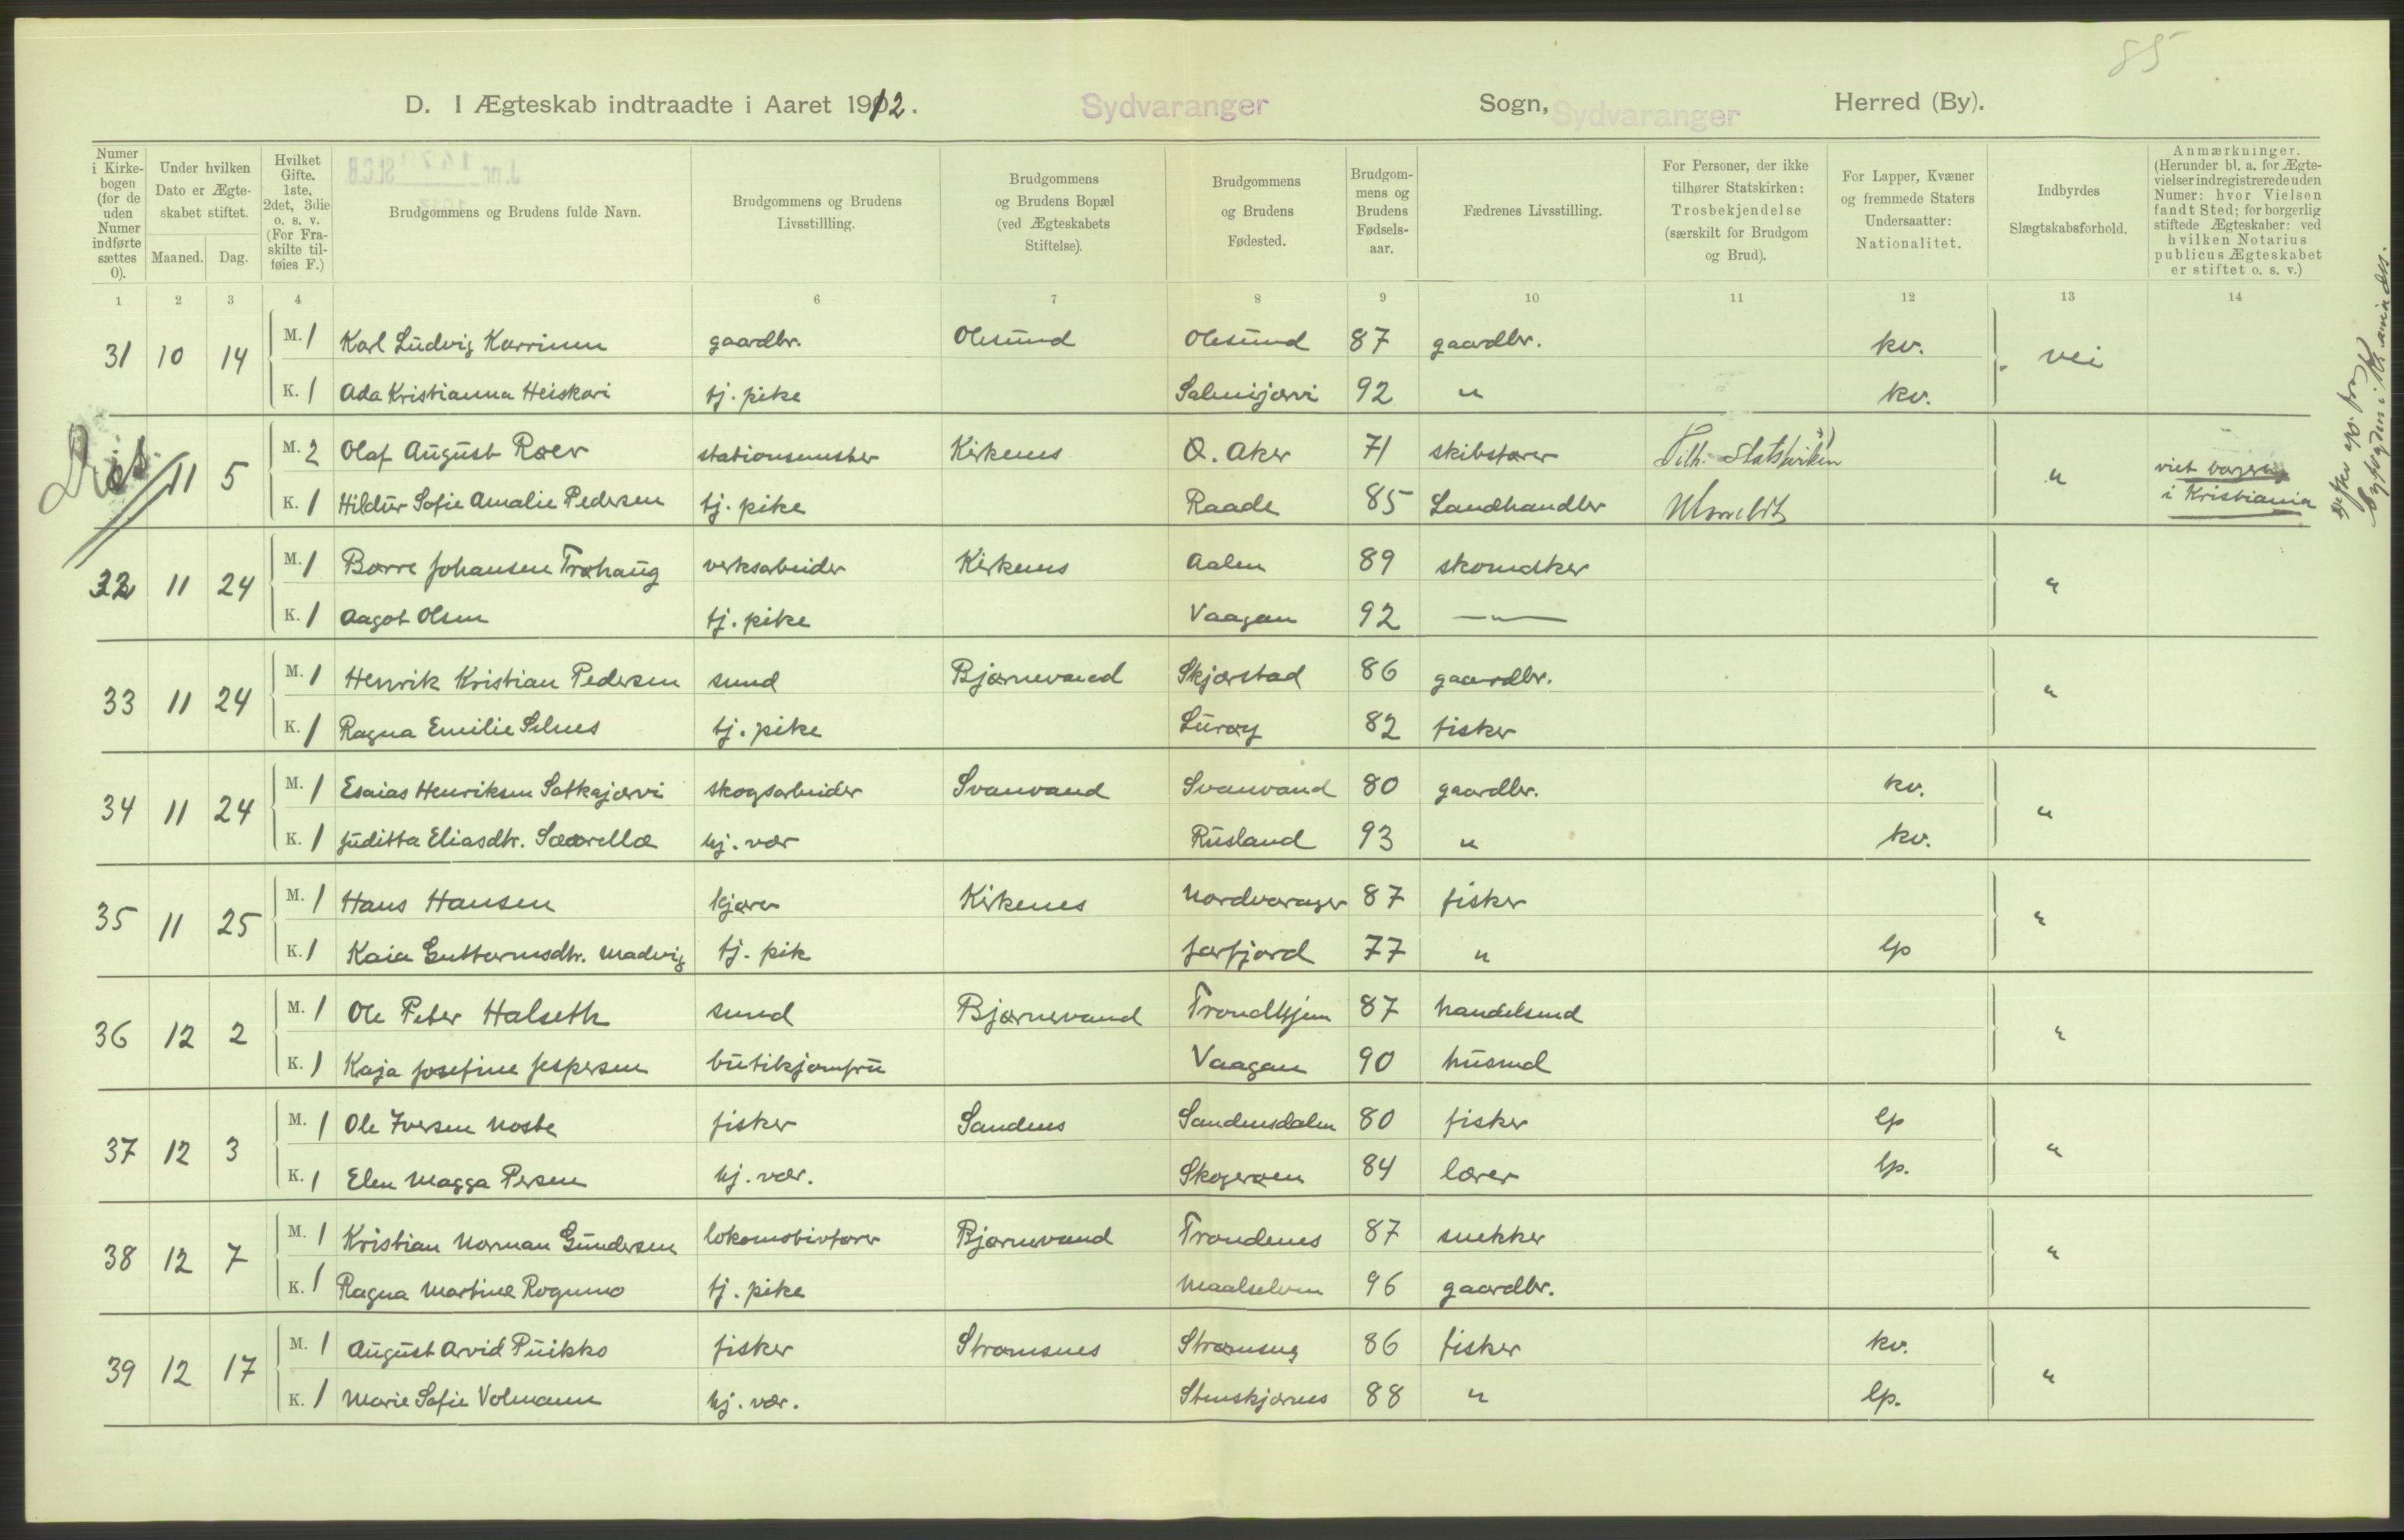 85
D. I Ægteskab indtraadte i Aaret 1912. Sydvaranger Sogn, Sydvaranger Herred (By).
Numer i Kirkebogen (for de uden Numer indførte sættes 0).
Under hvilken Dato er Ægteskabet stiftet.
Maaned. Dag.
Hvilket Gifte. 1ste, 2det, 3die o. s. v. (For Fraskilte tilføies F.)
Brudgommens og Brudens fulde Navn.
Brudgommens og Brudens Livsstillling.
Brudgommens og Brudens Bopæl (ved Ægteskabets Stiftelse).
Brudgommens og Brudens Fødested.
Brudgommens og Brudens Fødselsaar.
Fædrenes Livsstilling.
For Personer, der ikke tilhører Statskirken: Trosbekjendelse (særskilt for Brudgom og Brud).
For Lapper, Kvæner og fremmede Staters Undersaatter: Nationalitet.
Indbyrdes Slægtskabsforhold.
Anmærkninger. (Herunder bl. a. for Ægtevielser indregistrerede uden Numer: hvor Vielsen fandt Sted; for borgerlig stiftede Ægteskaber: ved hvilken Notarius publicus Ægteskabet er stiftet o. s. v.)
1 2 3 4 6 7 8 9 10 11 12 13 14
31 10 14 M. 1 Karl Ludvig Karrinen gaardbr. Olesund Olesund 87 gaardbr. kv. nei
K. 1 Ada Kristianna Heiskari tj. pike Salmijarvi 92 " kv.
11 5 M. 2 Olaf August Roer stationsmester Kirkenes Ø. Aker 71 skibsfører Tilh. Statskirken " viet borgerlig
K. 1 Hildur Sofie Amalie Pedersen tj. pike Raade 85 Landhandler i Kristiania
32 11 24 M. 1 Børre Johansen Trøhaug verksarbeider Kirkenes Aalen 89 skomaker "
K. 1 Aagot Olsen tj. pike Vaagan 92 — " —
33 11 24 M. 1 Henrik Kristian Pedersen smed Bjørnevand Skjærstad 86 gaardbr. "
K. 1 Ragna Emilie Selnes tj. pike Lurøy 82 fisker
34 11 24 M. 1 Esaias Henriksen Satkajærvi skogsarbeider Svanvand Svanvand 80 gaardbr. kv. "
K. 1 Juditta Eliasdtr. Sæærellæ hj. vær Rusland 93 " kv.
35 11 25 M. 1 Hans Hansen kjører Kirkenes Nordvaranger 87 fisker "
K. 1 Kaia Guttormsdtr. Madvig tj. pik Jarfjord 77 " lp
36 12 2 M. 1 Ole Peter Halseth smed Bjørnevand Trondhjem 87 handelsmd "
K. 1 Kaja Josefine Jespersen butikjomfru Vaagan 90 husmd
37 12 3 M. 1 Ole Iversen Noste fisker Sandnes Sandnesdalen 80 fisker lp "
K. 1 Elen Magga Persen hj. vær. Skogerøen 84 lærer lp.
38 12 7 M. 1 Kristian Norman Gundersen lokomotivfører Bjørnevand Trondenes 87 snekker "
K. 1 Ragna Martine Rognmo tj. pike Maalselven 96 gaardbr.
39 12 17 M. 1 August Arvid Puikko fisker Strømsnes Strømsnes 86 fisker kv. "
K. 1 Marie Sofie Volmann hj. vær. Stenskjærnes 88 " lp.